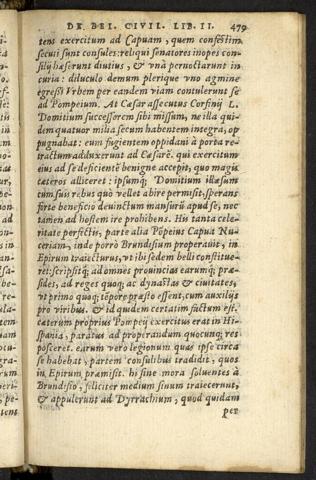 DE BEL. CIVIL. LIB. II. 479
tens exercitum ad Capuam, quem confestim
secuti sunt consules: reliqui senatores inopes con-
silij hæserunt diutius, & unà pernoctarunt in
curia: diluculo demum plerique uno agmine
egressi Urbem per eandem viam contulerunt se
ad Pompeium. At Cæsar assecutus Corfinij L.
Domitium successorem sibi missum, ne illa qui-
dem quatuor milia secum habentem integra, op
pugnabat: eum fugientem oppidani à porta re-
tractum adduxerunt ad Cæsarē. qui exercitum
eius ad se deficientē benigne accepit, quo magis
cæteros alliceret: ipsumq; Domitium illæsum
cum suis rebus quò vellet abire permisit, sperans
forte beneficio deuinctum mansurū apud se, nec
tamen ad hostem ire prohibens. His tanta cele-
ritate perfectis, parte alia Pōpeius Capua Nu
ceriam, inde porrò Brundisium properauit, in
Epirum traiecturus, vt ibi sedem belli constitue-
ret: scripsitq; ad omnes prouincias earumq; præ-
sides, ad reges quoq; ac dynastas & ciuitates,
vt primo quoq; tēpore præsto essent, cum auxilijs
pro viribus. & id quidem certatim factum est.
cæterum proprius Pompeij exercitus erat in Hi-
spania, paratus ad properandum quocunq; res
posceret. earum vero legionum quas ipse circa
se habebat, partem consulibus tradidit, quos
in Epirum præmisit. hi sine mora soluentes à
Brundisio, feliciter medium sinum traiecerunt,
& appulerunt ad Dyrrachium, quod quidam
per